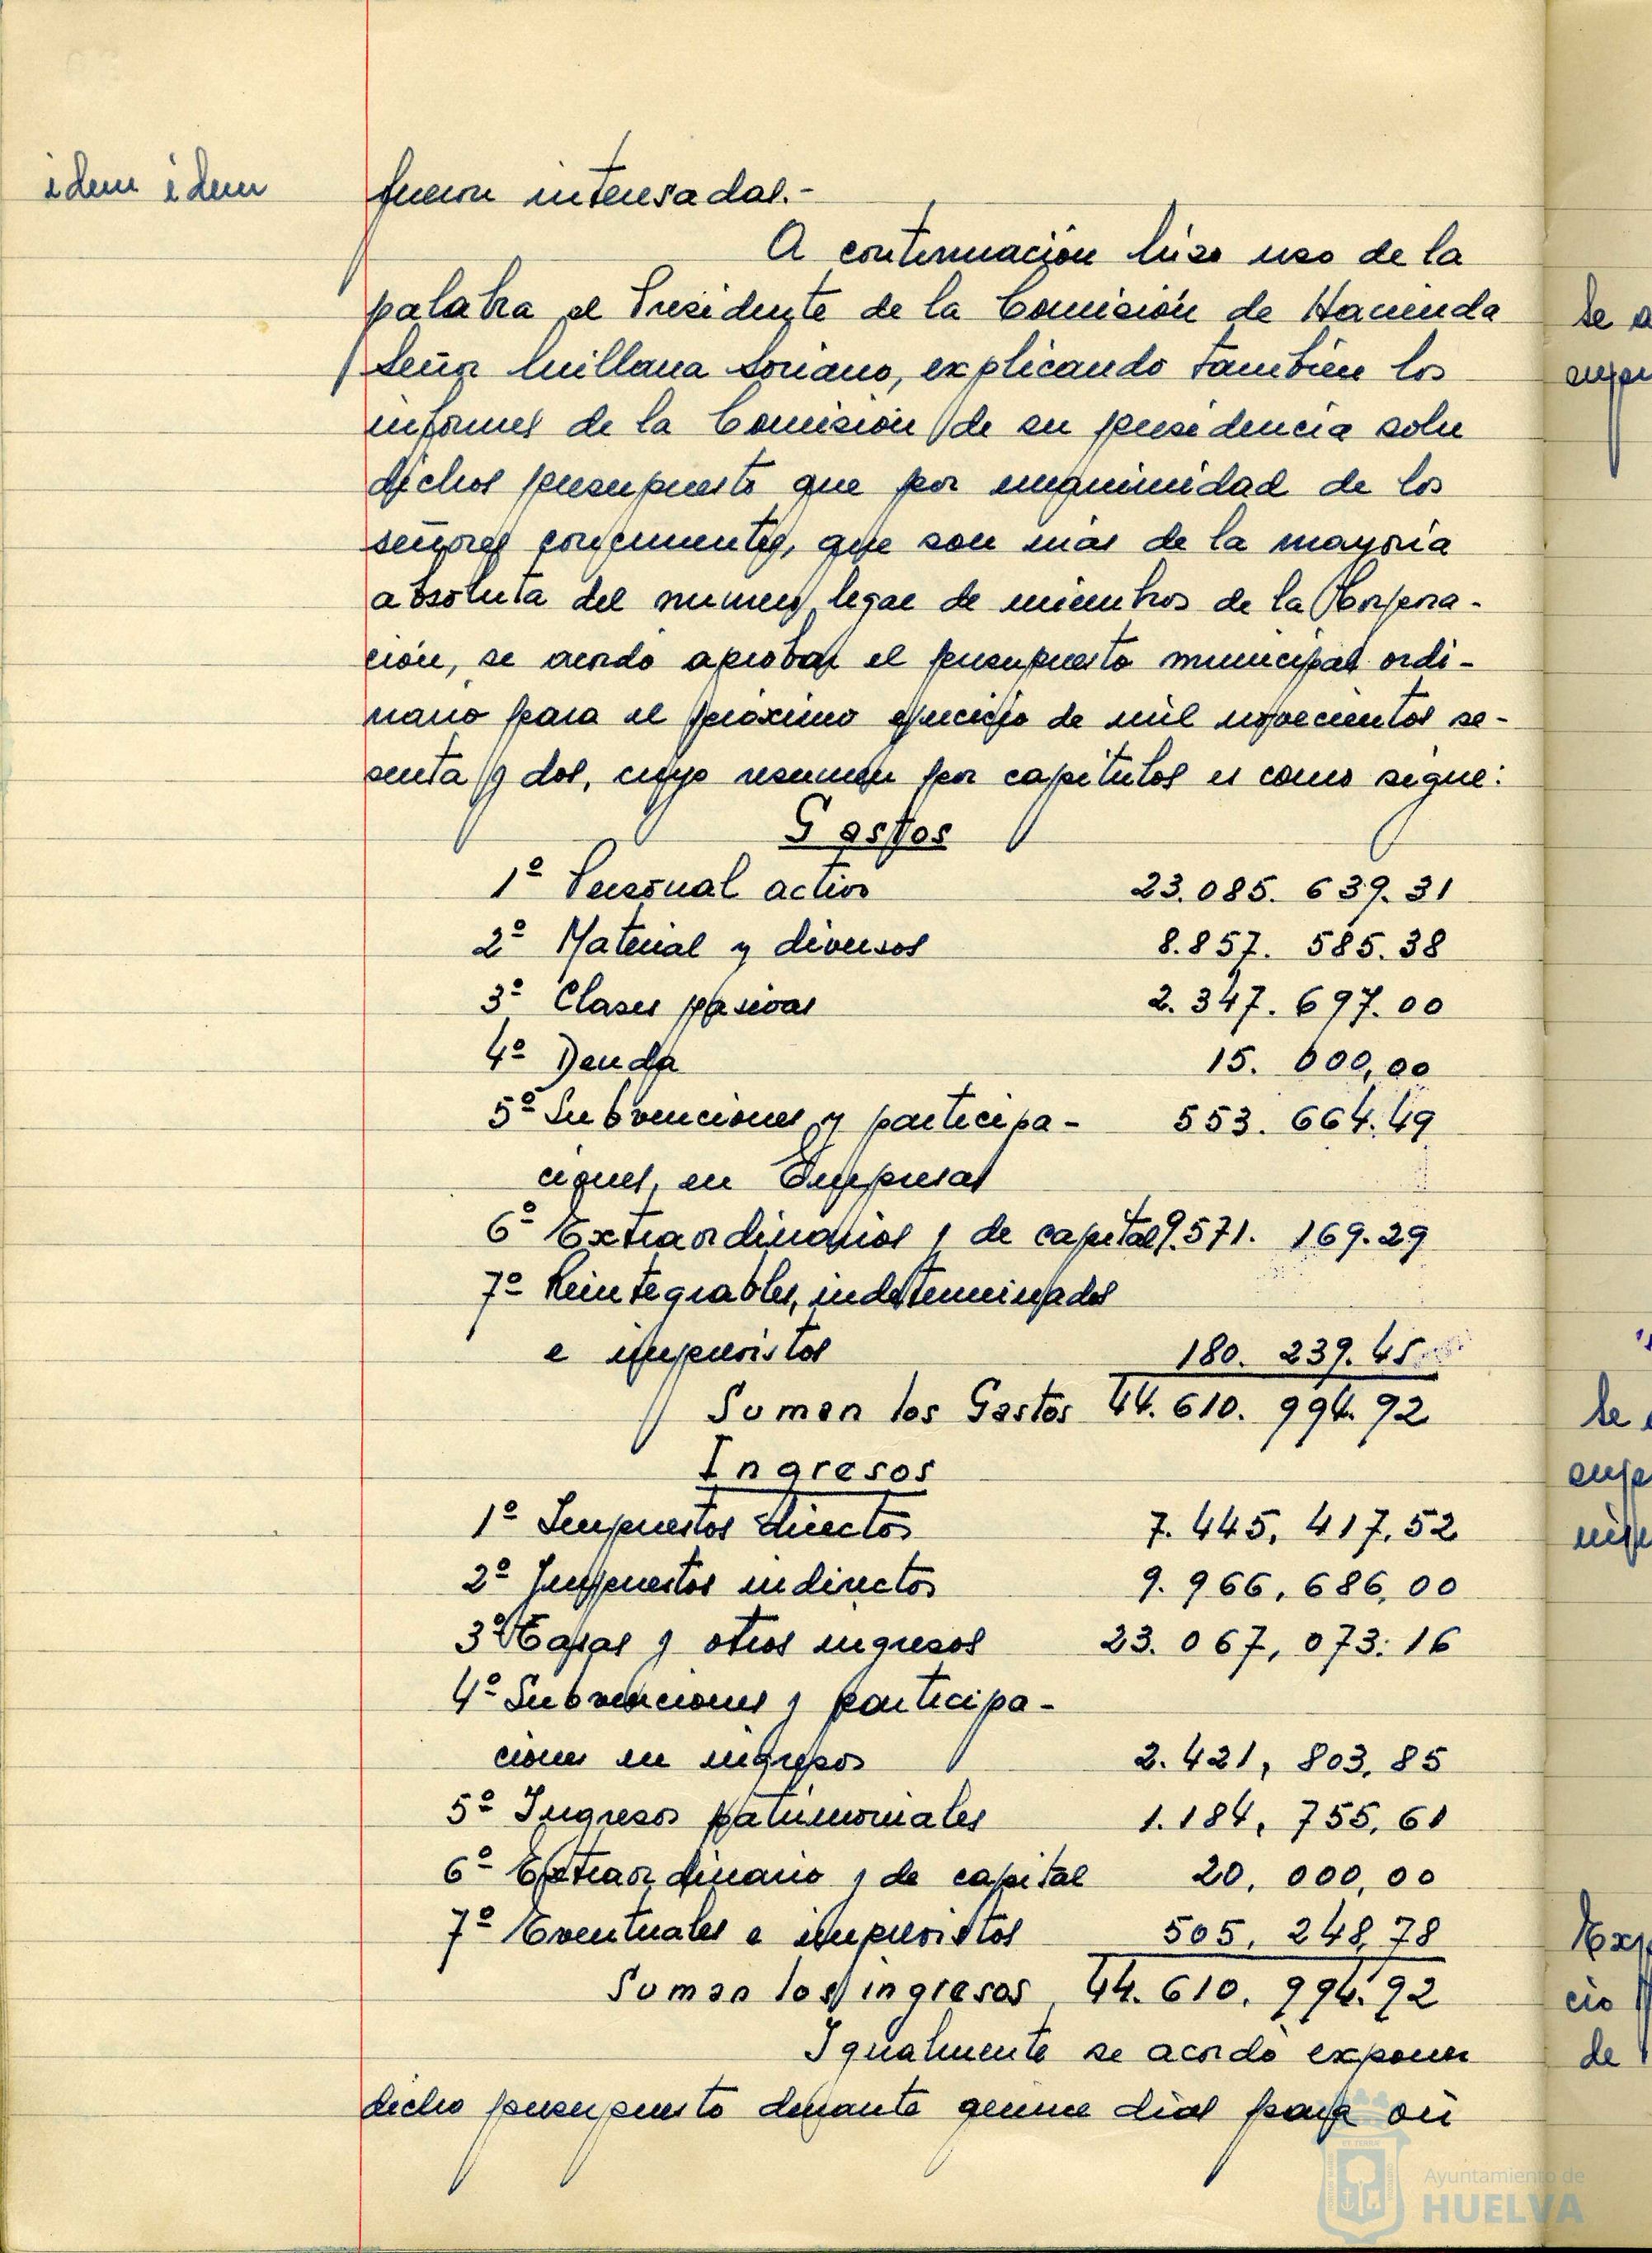 idem idem
fueron interesadas.-
A continuación hizo uso de la
palabra el Presidente de la Comisión de Hacienda
Señor Millana Soriano, explicando también los
informes de la Comisión de su presidencia sobre
dichos presupuesto que por unanimidad de los
señores concurrentes, que son más de la mayoría
absoluta del numero legal de miembros de la Corpora-
ción, se acordo aprobar el presupuesto municipal ordi-
nario para el próximo ejercicio de mil novecientos se-
senta y dos, cuyo resumen por capitulos es como sigue:
Gastos
1º Personal activo 23.085.639.31
2º Material y diversos 8.857.585.38
3º Clases pasivas 2.347.697.00
4º Deuda 15.000,00
5º Subvenciones y participa- 553.664.49
ciones, en Empresas
6º Extraordinarios y de capital 9.571.169.29
7º Reintegrables, indeterminados
e imprevistos 180.239.45
Suman los Gastos 44.610.994.92
Ingresos
1º Impuestos directos 7.445,417,52
2º Impuestos indirectos 9.966,686,00
3º Tasas y otros ingresos 23.067,073.16
4º Subvenciones y participa-
ciones en ingresos 2.421,803,85
5º Ingresos patrimoniales 1.184,755,61
6º Extraordinario y de capital 20,000,00
7º Eventuales e imprevistos 505,248,78
Suman los ingresos 44.610,994.92
Igualmente se acordó exponer
dicho presupuesto durante quince dias para oir
Se a
Se
Exp
cio
de
Ayuntamiento de
HUELVA